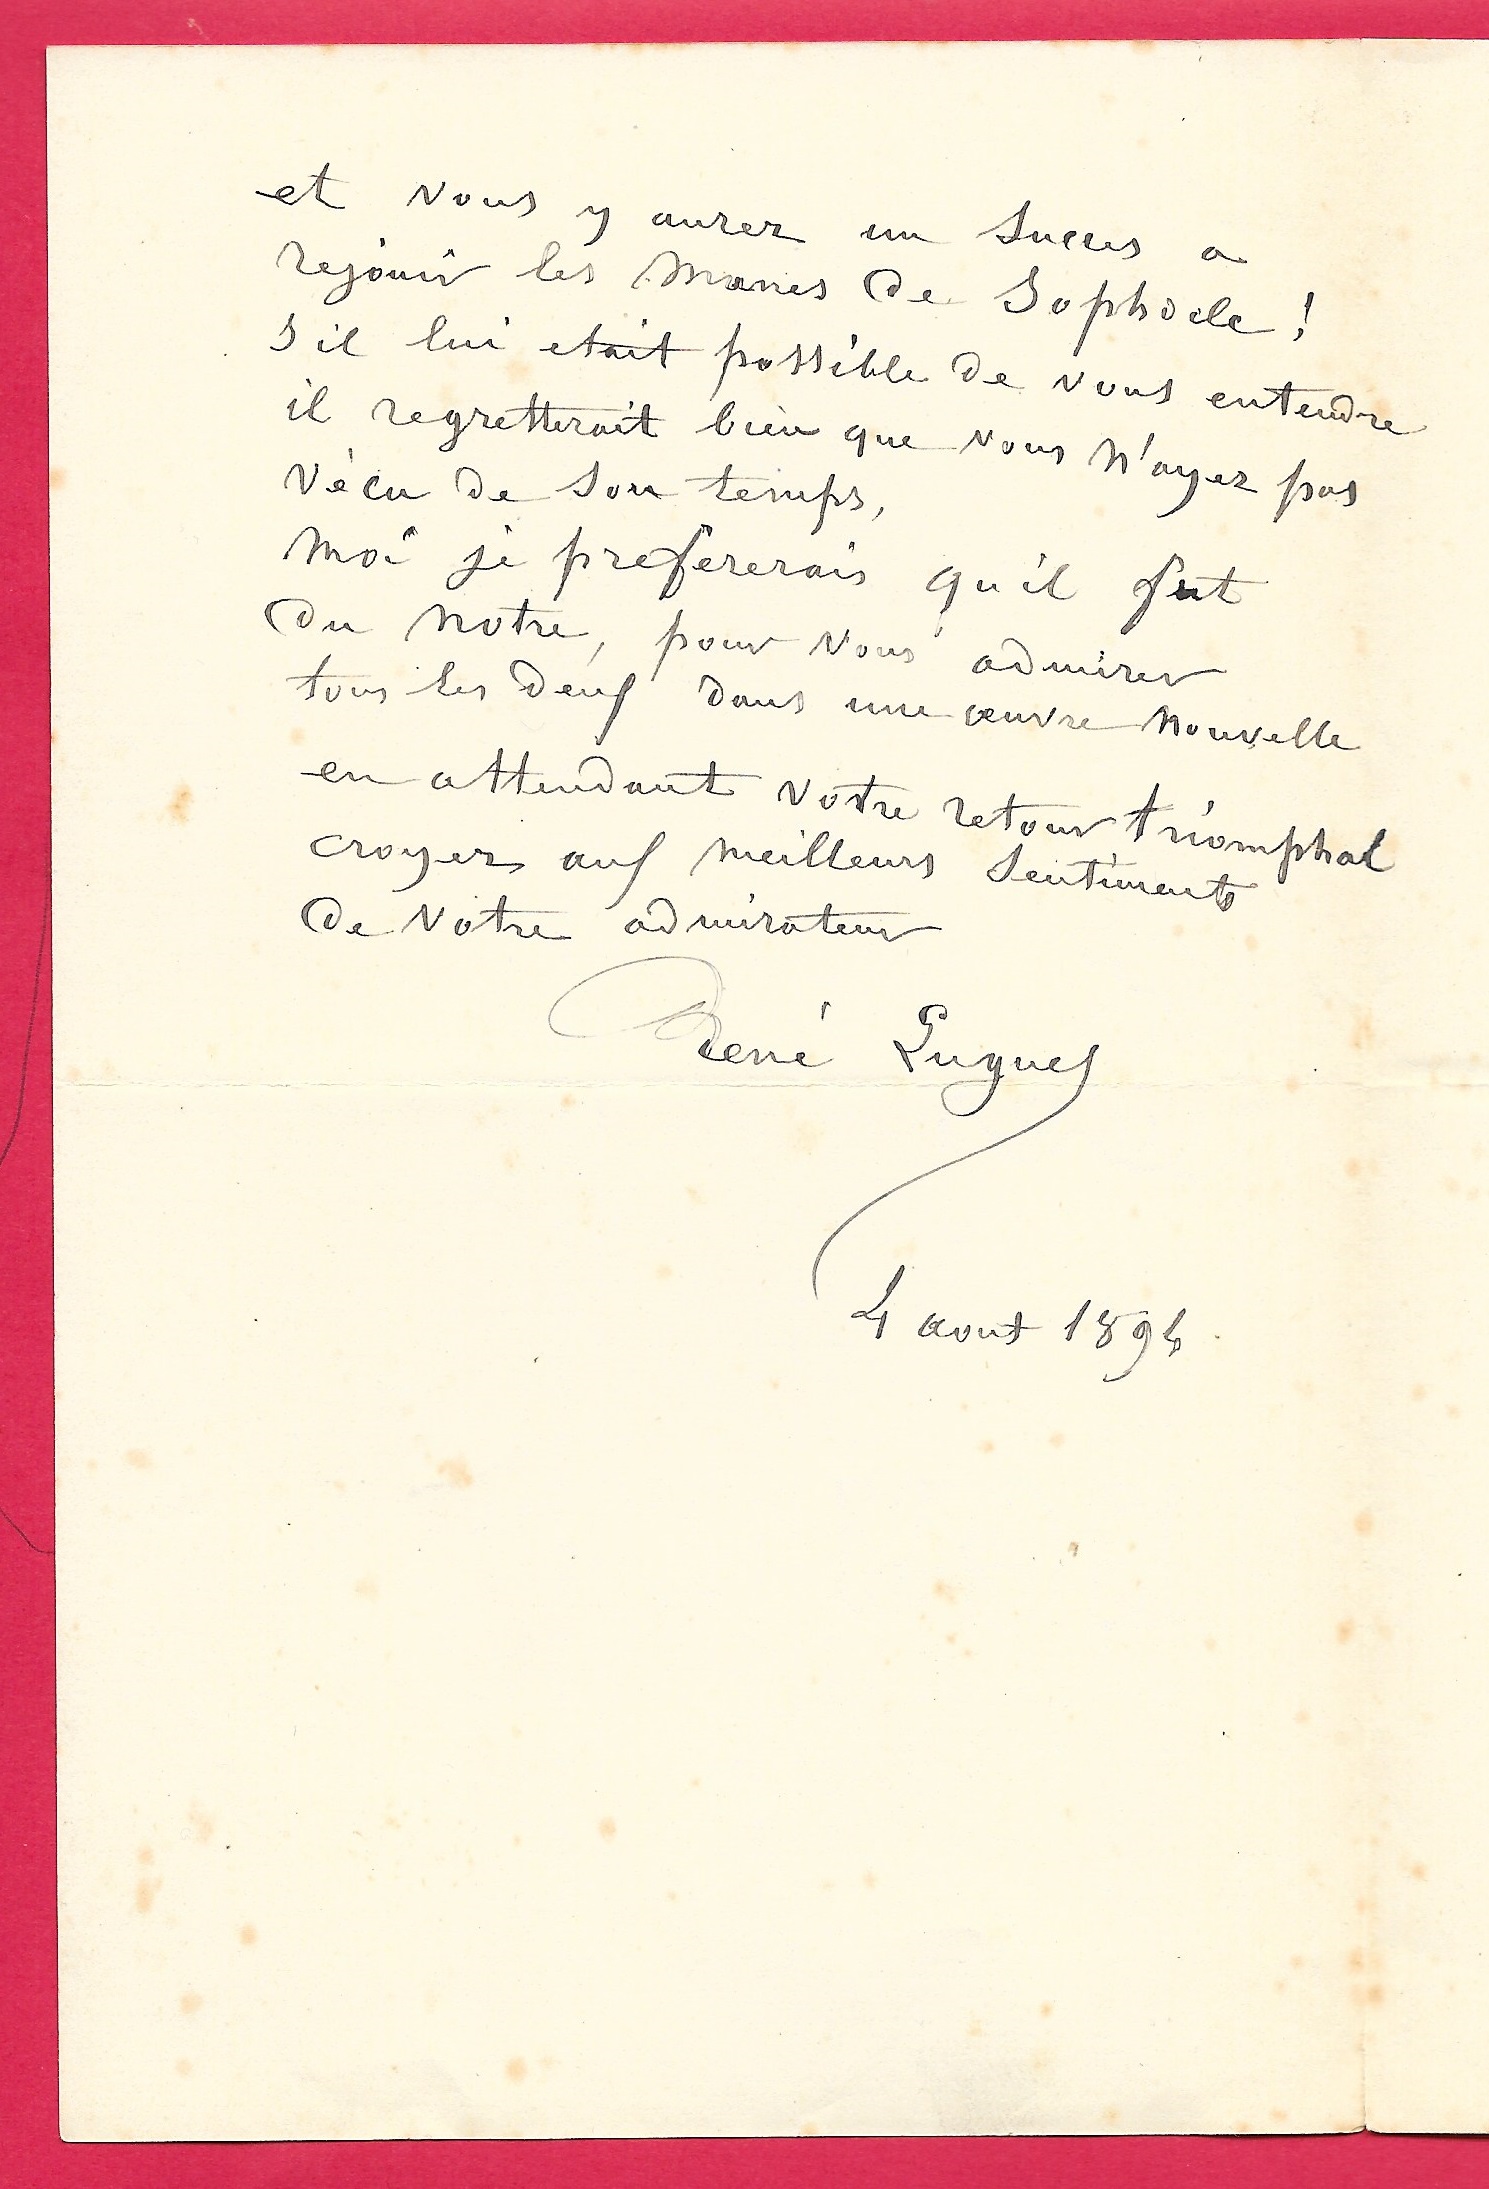 et vous y aurez un succes a
rejouir les manes de Sophocle !
s'il lui etait possible de vous entendre
il regretterait bien que vous n'ayez pas
vécu de son temps,
moi je prefererais qu'il fut
du notre, pour vous admirer
tous les deux dans une œuvre nouvelle
en attendant votre retour triomphal
croyez aux meilleurs sentiments
de votre admirateur
René Luguet
4 aout 1894